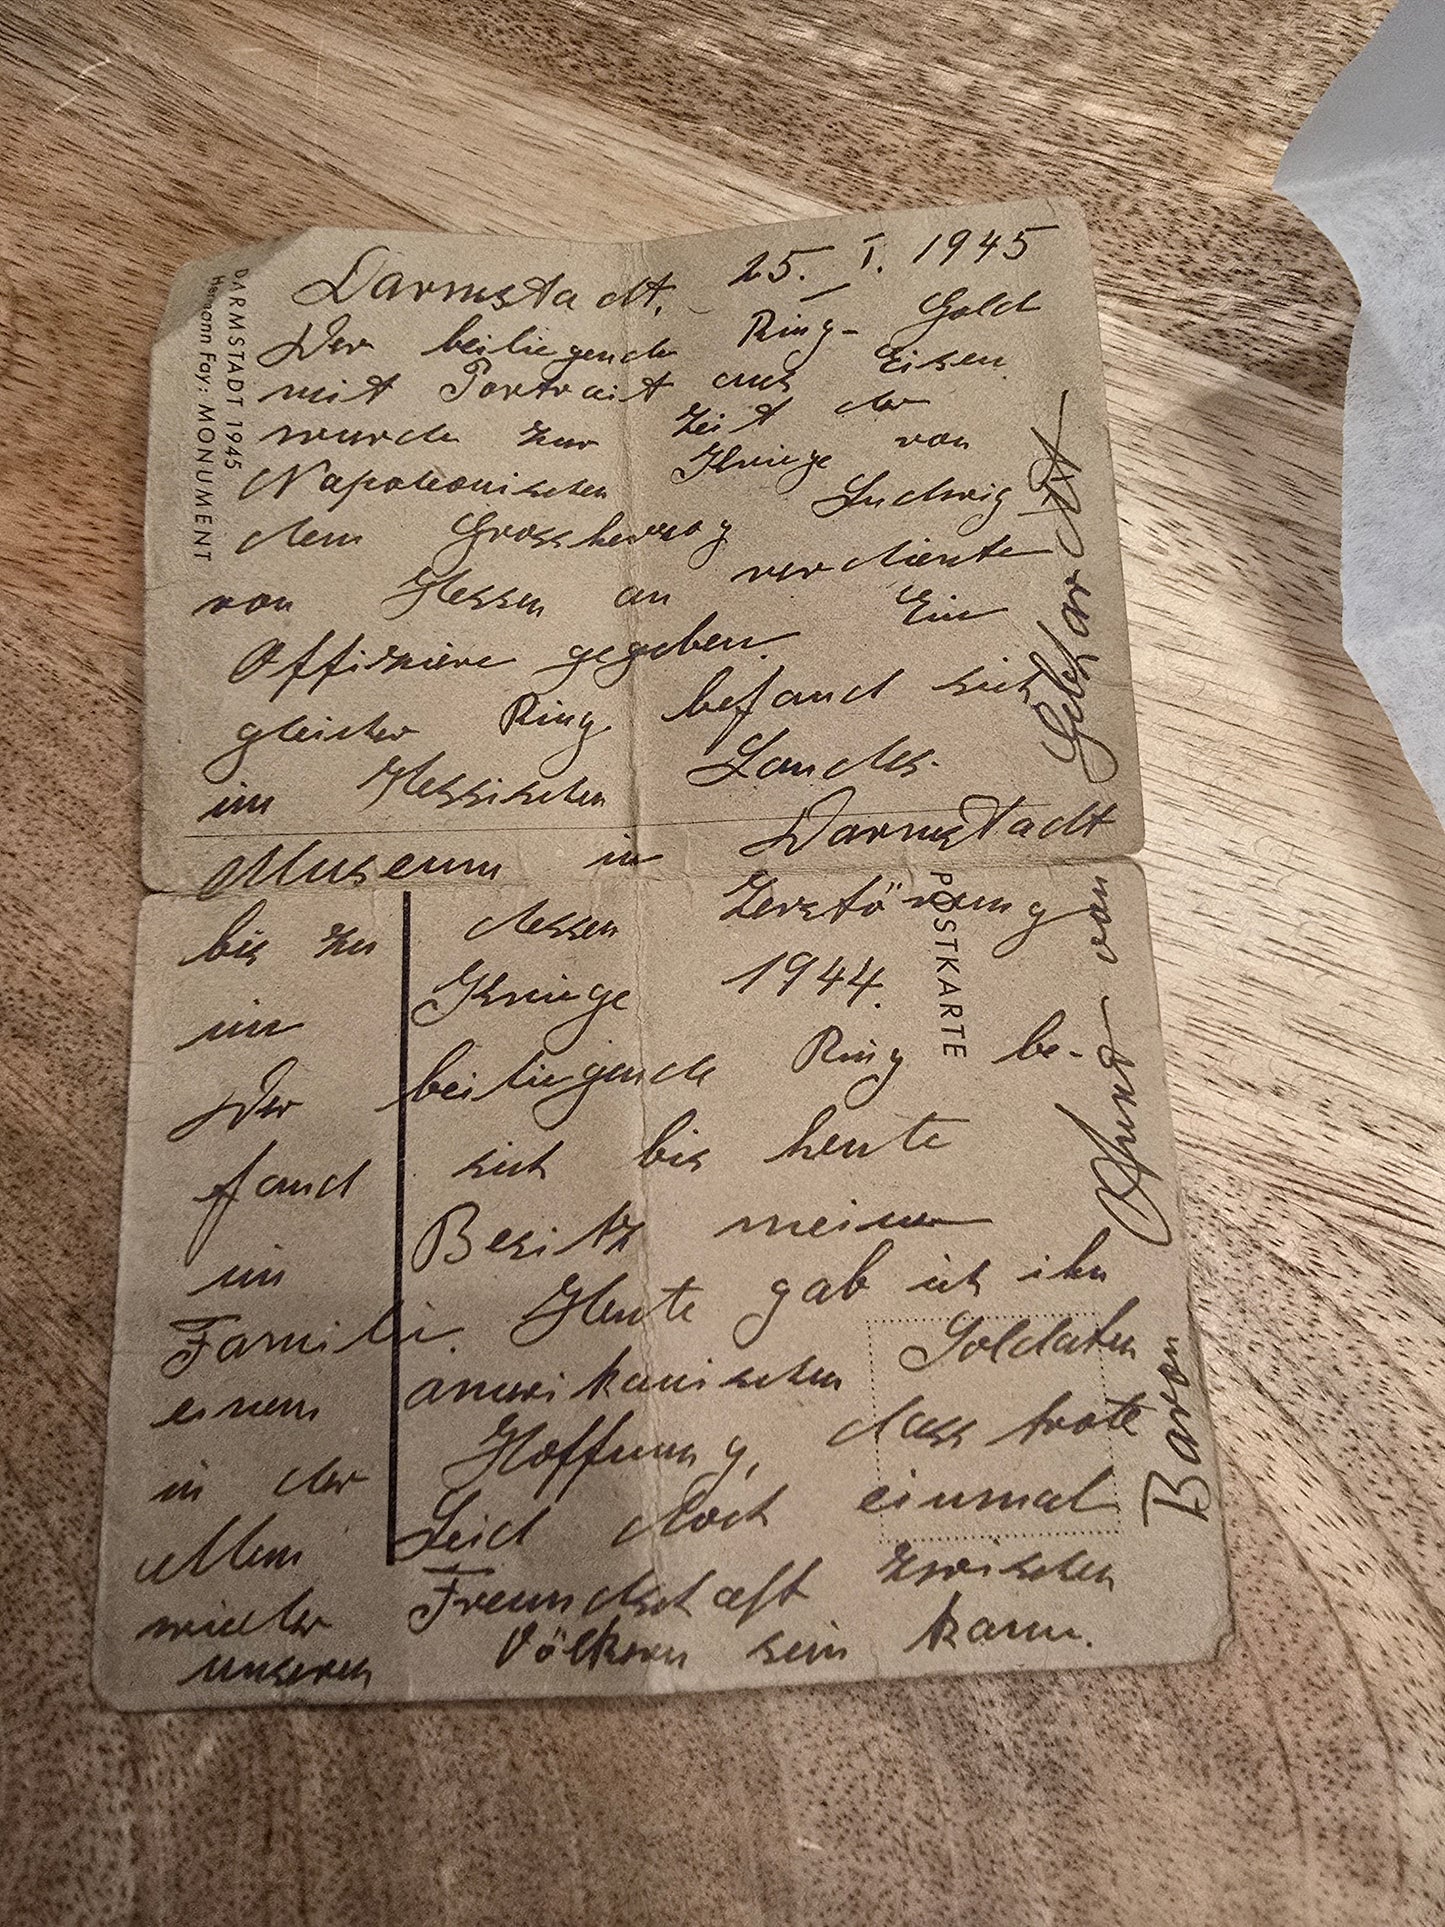 DARMSTADT 1945
Hermann Fay: MONUMENT
POSTKARTE
Darmstadt, 25. I. 1945
Der beiliegende Ring- Gold
mit Portrait aus Eisen
wurde zur Zeit der
Napoleonischen Kriege von
dem Grossherzog Ludwig
von Hessen an verdiente
Offiziere gegeben. Ein
gleicher Ring befand sich
im Hessischen Landes-
Museum in Darmstadt
bis zu dessen Zerstörung
im Kriege 1944.
Der beiliegende Ring be-
fand sich bis heute
im Besitz meiner
Familie. Heute gab ich ihn
einem amerikanischen Soldaten
in der Hoffnung, dass trotz
allem Leid doch einmal
wieder Freundschaft zwischen
unseren Völkern sein kann.
Baron von